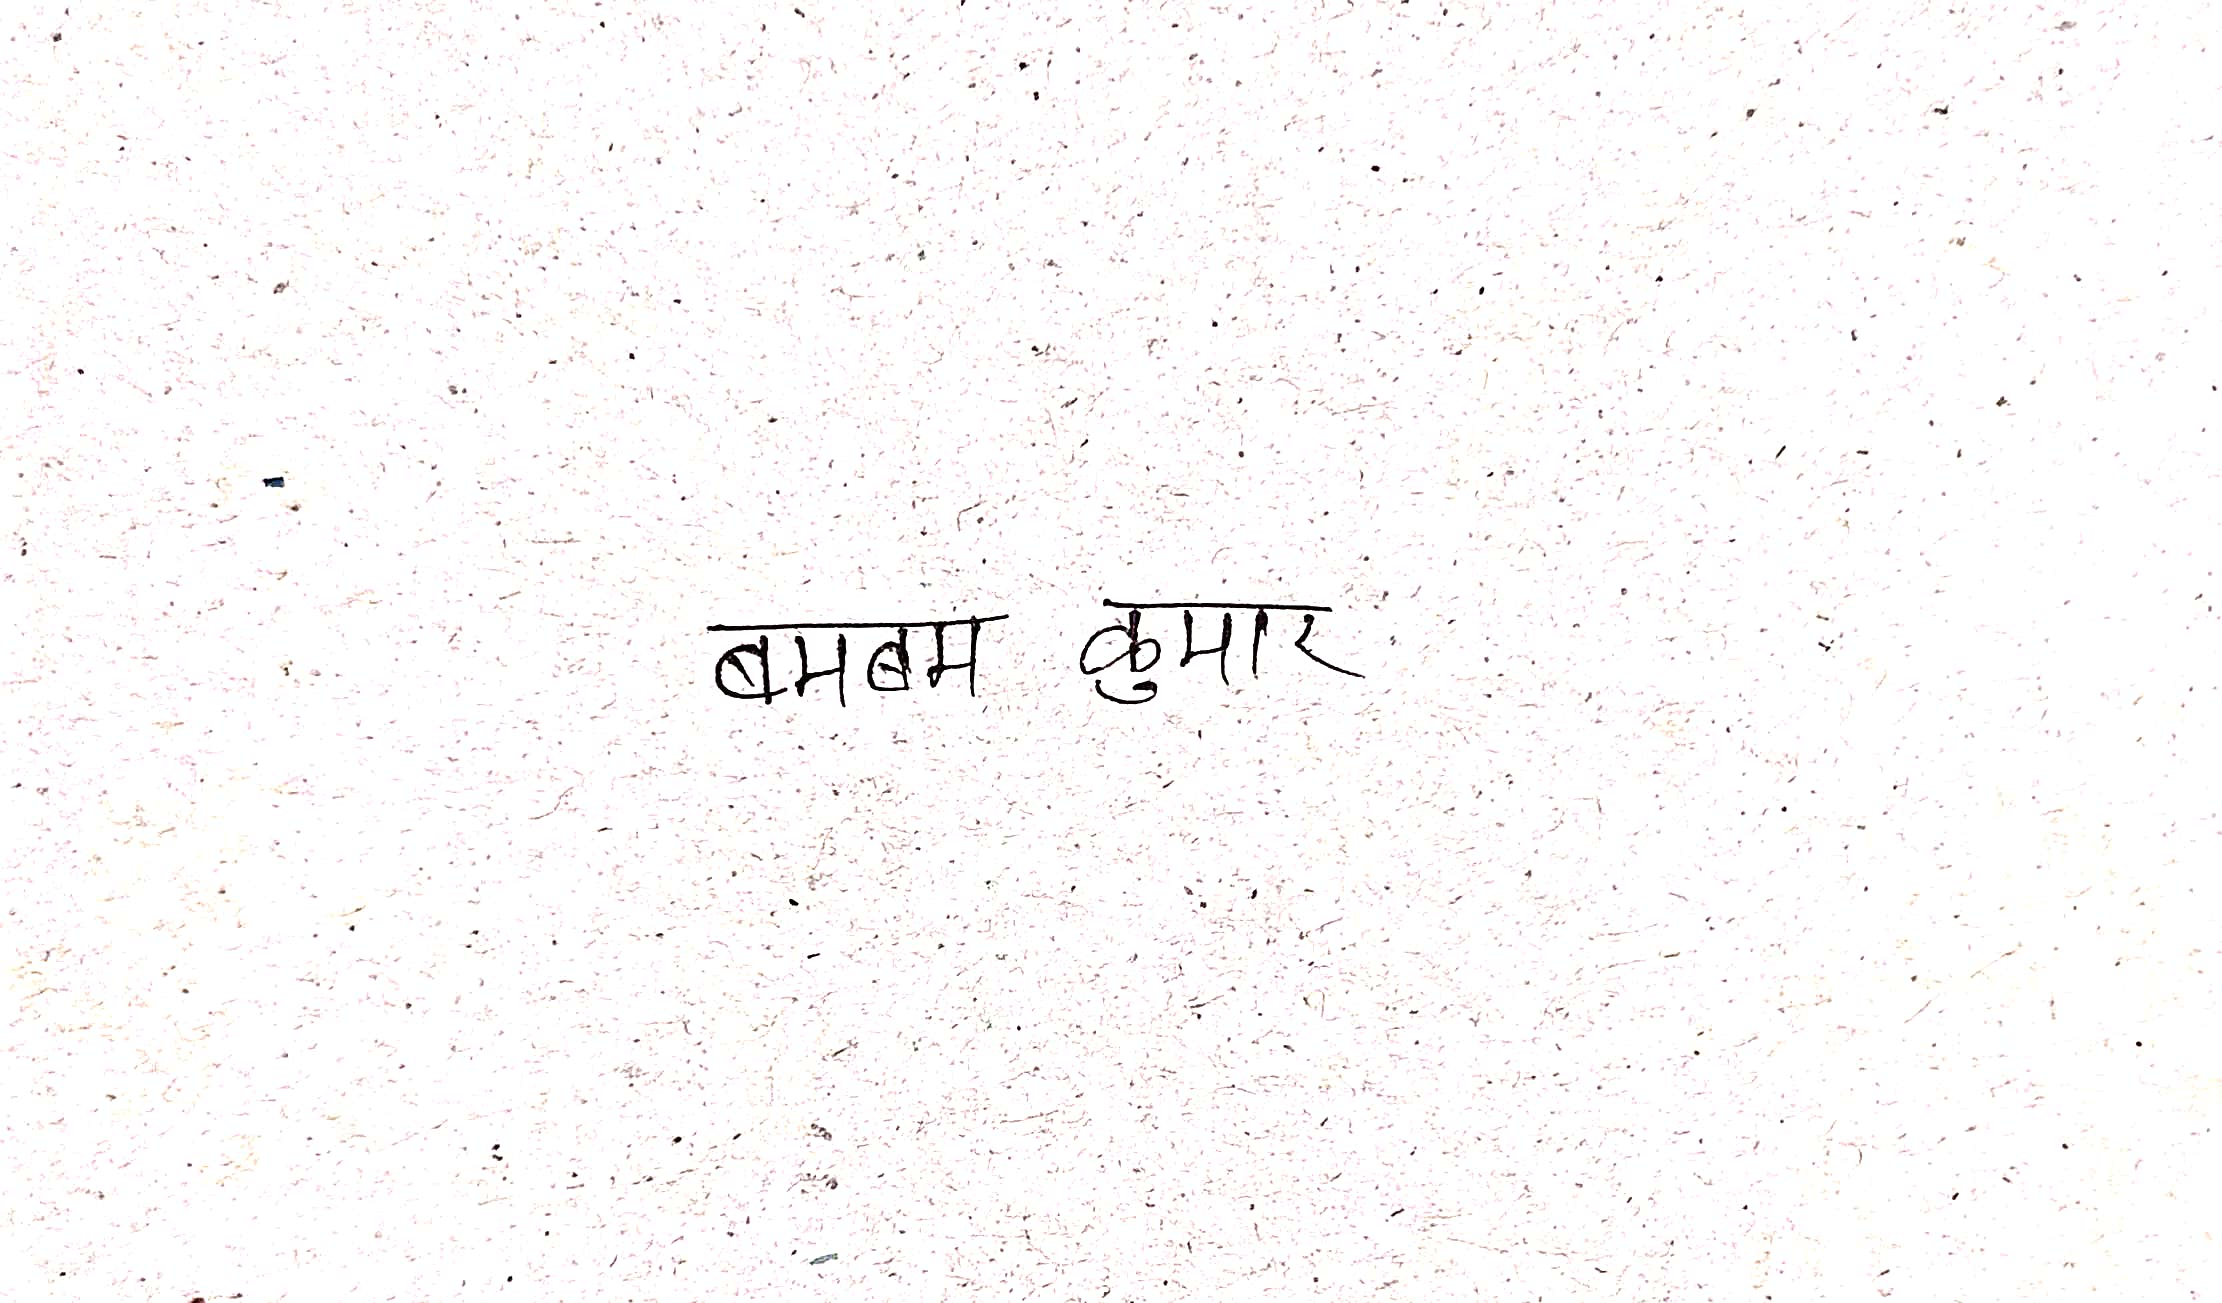 बमबम कुमार